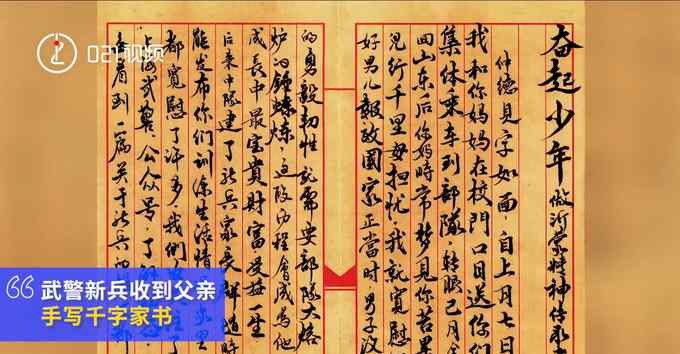 021视频
奋起少年 做沂蒙精神传承
仲德見字如面,自上月七日
我和你妈妈在校門口目送你们
集体乘车到部隊,轉瞬已月
回山东后你妈時常梦見你苦累
兒行千里母担忧,我就寬慰
好男儿報效國家正當时,男子汉
的勇毅韧性就需要部隊大熔
炉的锤炼,这段历程會成為他
成長中最宝貴財富受益一生
后来中隊建了新兵家長群,適時
能发布你们訓练生活情
都寬慰了许多我們
上海武警公众号,了解
看到一篇关于新兵
武警新兵收到父亲
手写千字家书